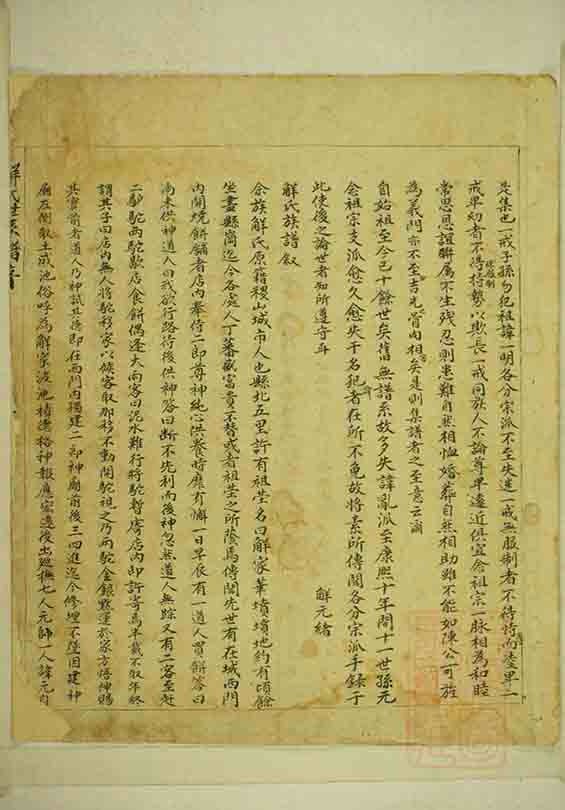 是集也一戒子孫勿犯祖諱一明各分宗派不至失迷一戒無服制者不得恃而凌卑一
戒卑幼者不得恃勢以欺長一戒同族人不論尊卑遠近俱宜念祖宗一脉相為和睦
常思恩誼聯属不生残忍則患難自然相恤婚葬自然相助雖不能如陳公可旌
為義門亦不至吉凶骨肉相矣是則集譜者之至意云爾
自始祖至今已十餘世矣舊無譜系故多失諱亂派至康熙十年間十一世孫元
念祖宗支派愈久愈失干名犯者在所不免故将素所傳聞各分宗派手錄于
此使後之論世者知所遵守耳
解元緒
解氏族譜叙
余族解氏原籍稷山城市人也縣北五里許有祖茔名曰解家華墳墳地約有頃餘
坐畫縣崗迄今各處人丁蕃盛富貴不替或者祖茔之所蔭焉傳聞先世有在城西門
内開燒餅鋪者店内奉侍二郎尊神純心洪養時靡有懈一日早辰有一道人買餅答曰
尚未供神道人曰我欲行路待後供神答曰断不先利而後神忽然道人無踪又有二客至赶
二馿駝兩駝歇店人食餅偶逢大雨客曰泥水難行將駝暫寄店内即許寄焉半載不取年終
謂其子曰店内無人將駝移家以候客取那移不動開駝視之乃兩駝金銀黙運於家方悟神賜
其實前者道人乃神試其德即在西門内獨建二郎神廟前後三四進迄今修理不墜因建神
廟在側取土成池俗呼為解家波池積德格神報應宏遠後出巡撫七人元帥一人諱元自